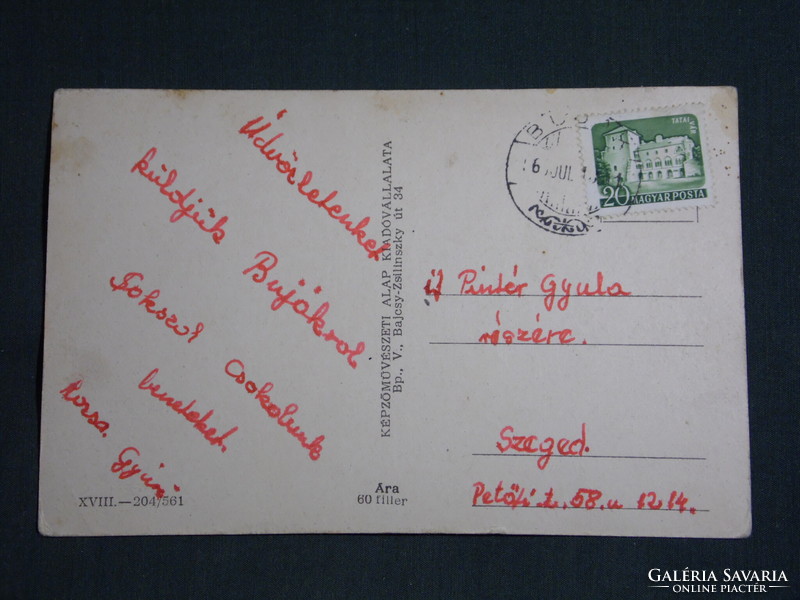 Üdvözletünket
küldjük Bujákról
Sokszor csokolunk
benneteket.
Gyuri
KÉPZŐMŰVÉSZETI ALAP KIADÓVÁLLALATA
Bp., V., Bajcsy-Zsilinszky út 34
XVIII.—204/561
Ára
60 fillér
JUL
TATAI
VÁR
20 MAGYAR POSTA
Pintér Gyula
részére.
Szeged.
Petőfi t. 58. u 12 14.
GALÉRIA SAVARIA
ONLINE PIACTÉR